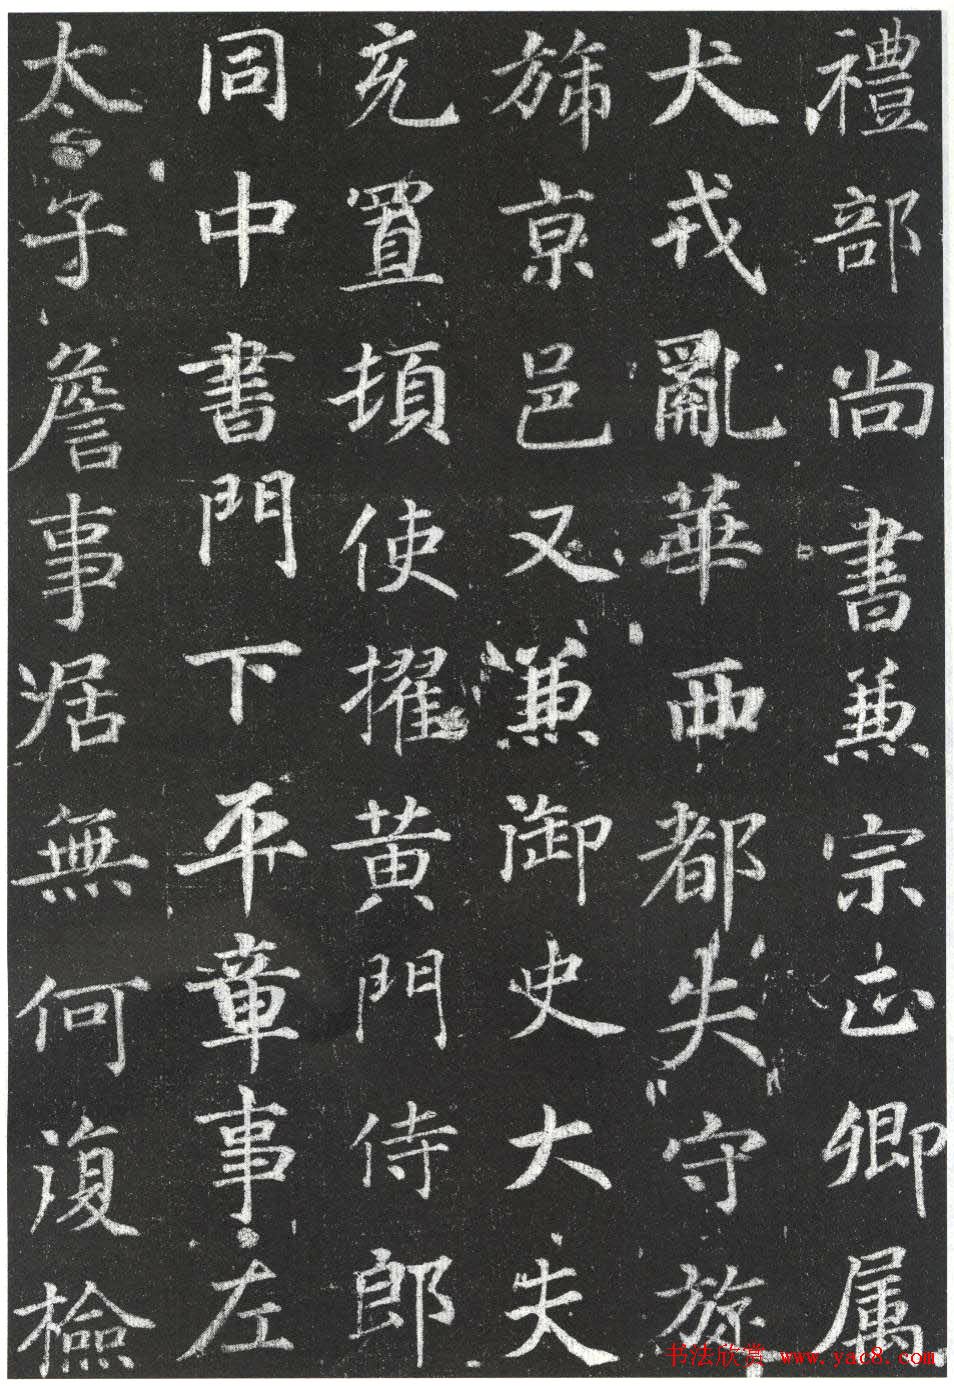 禮部尚書兼宗正卿属
犬戎亂華西都失守旋
旆京邑又兼御史大夫
充置頓使擢黃門侍郎
同中書門下平章事左
太子詹事居無何復檢
书法欣赏 www.yac8.com